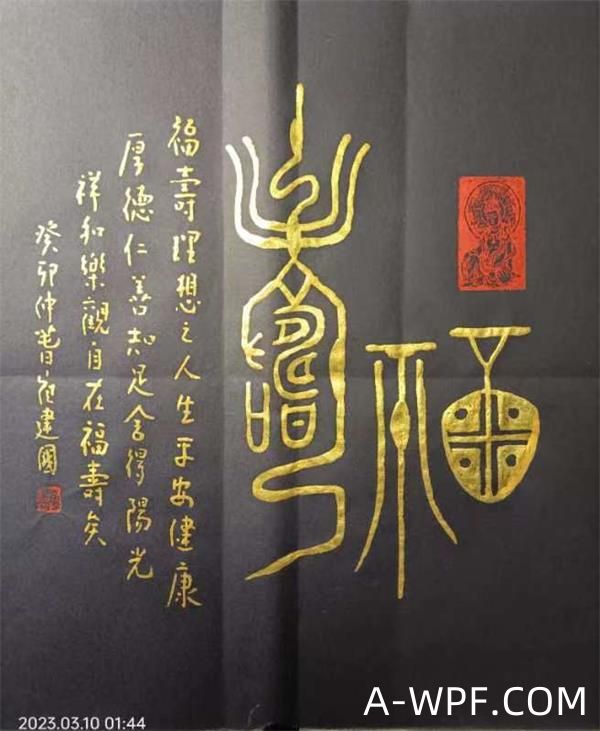 福
壽
福壽理想之人生平安健康
厚德仁善知足舍得陽光
祥和樂觀自在福壽矣
癸卯仲萅建國
2023.03.10 01:44
A-WPF.COM